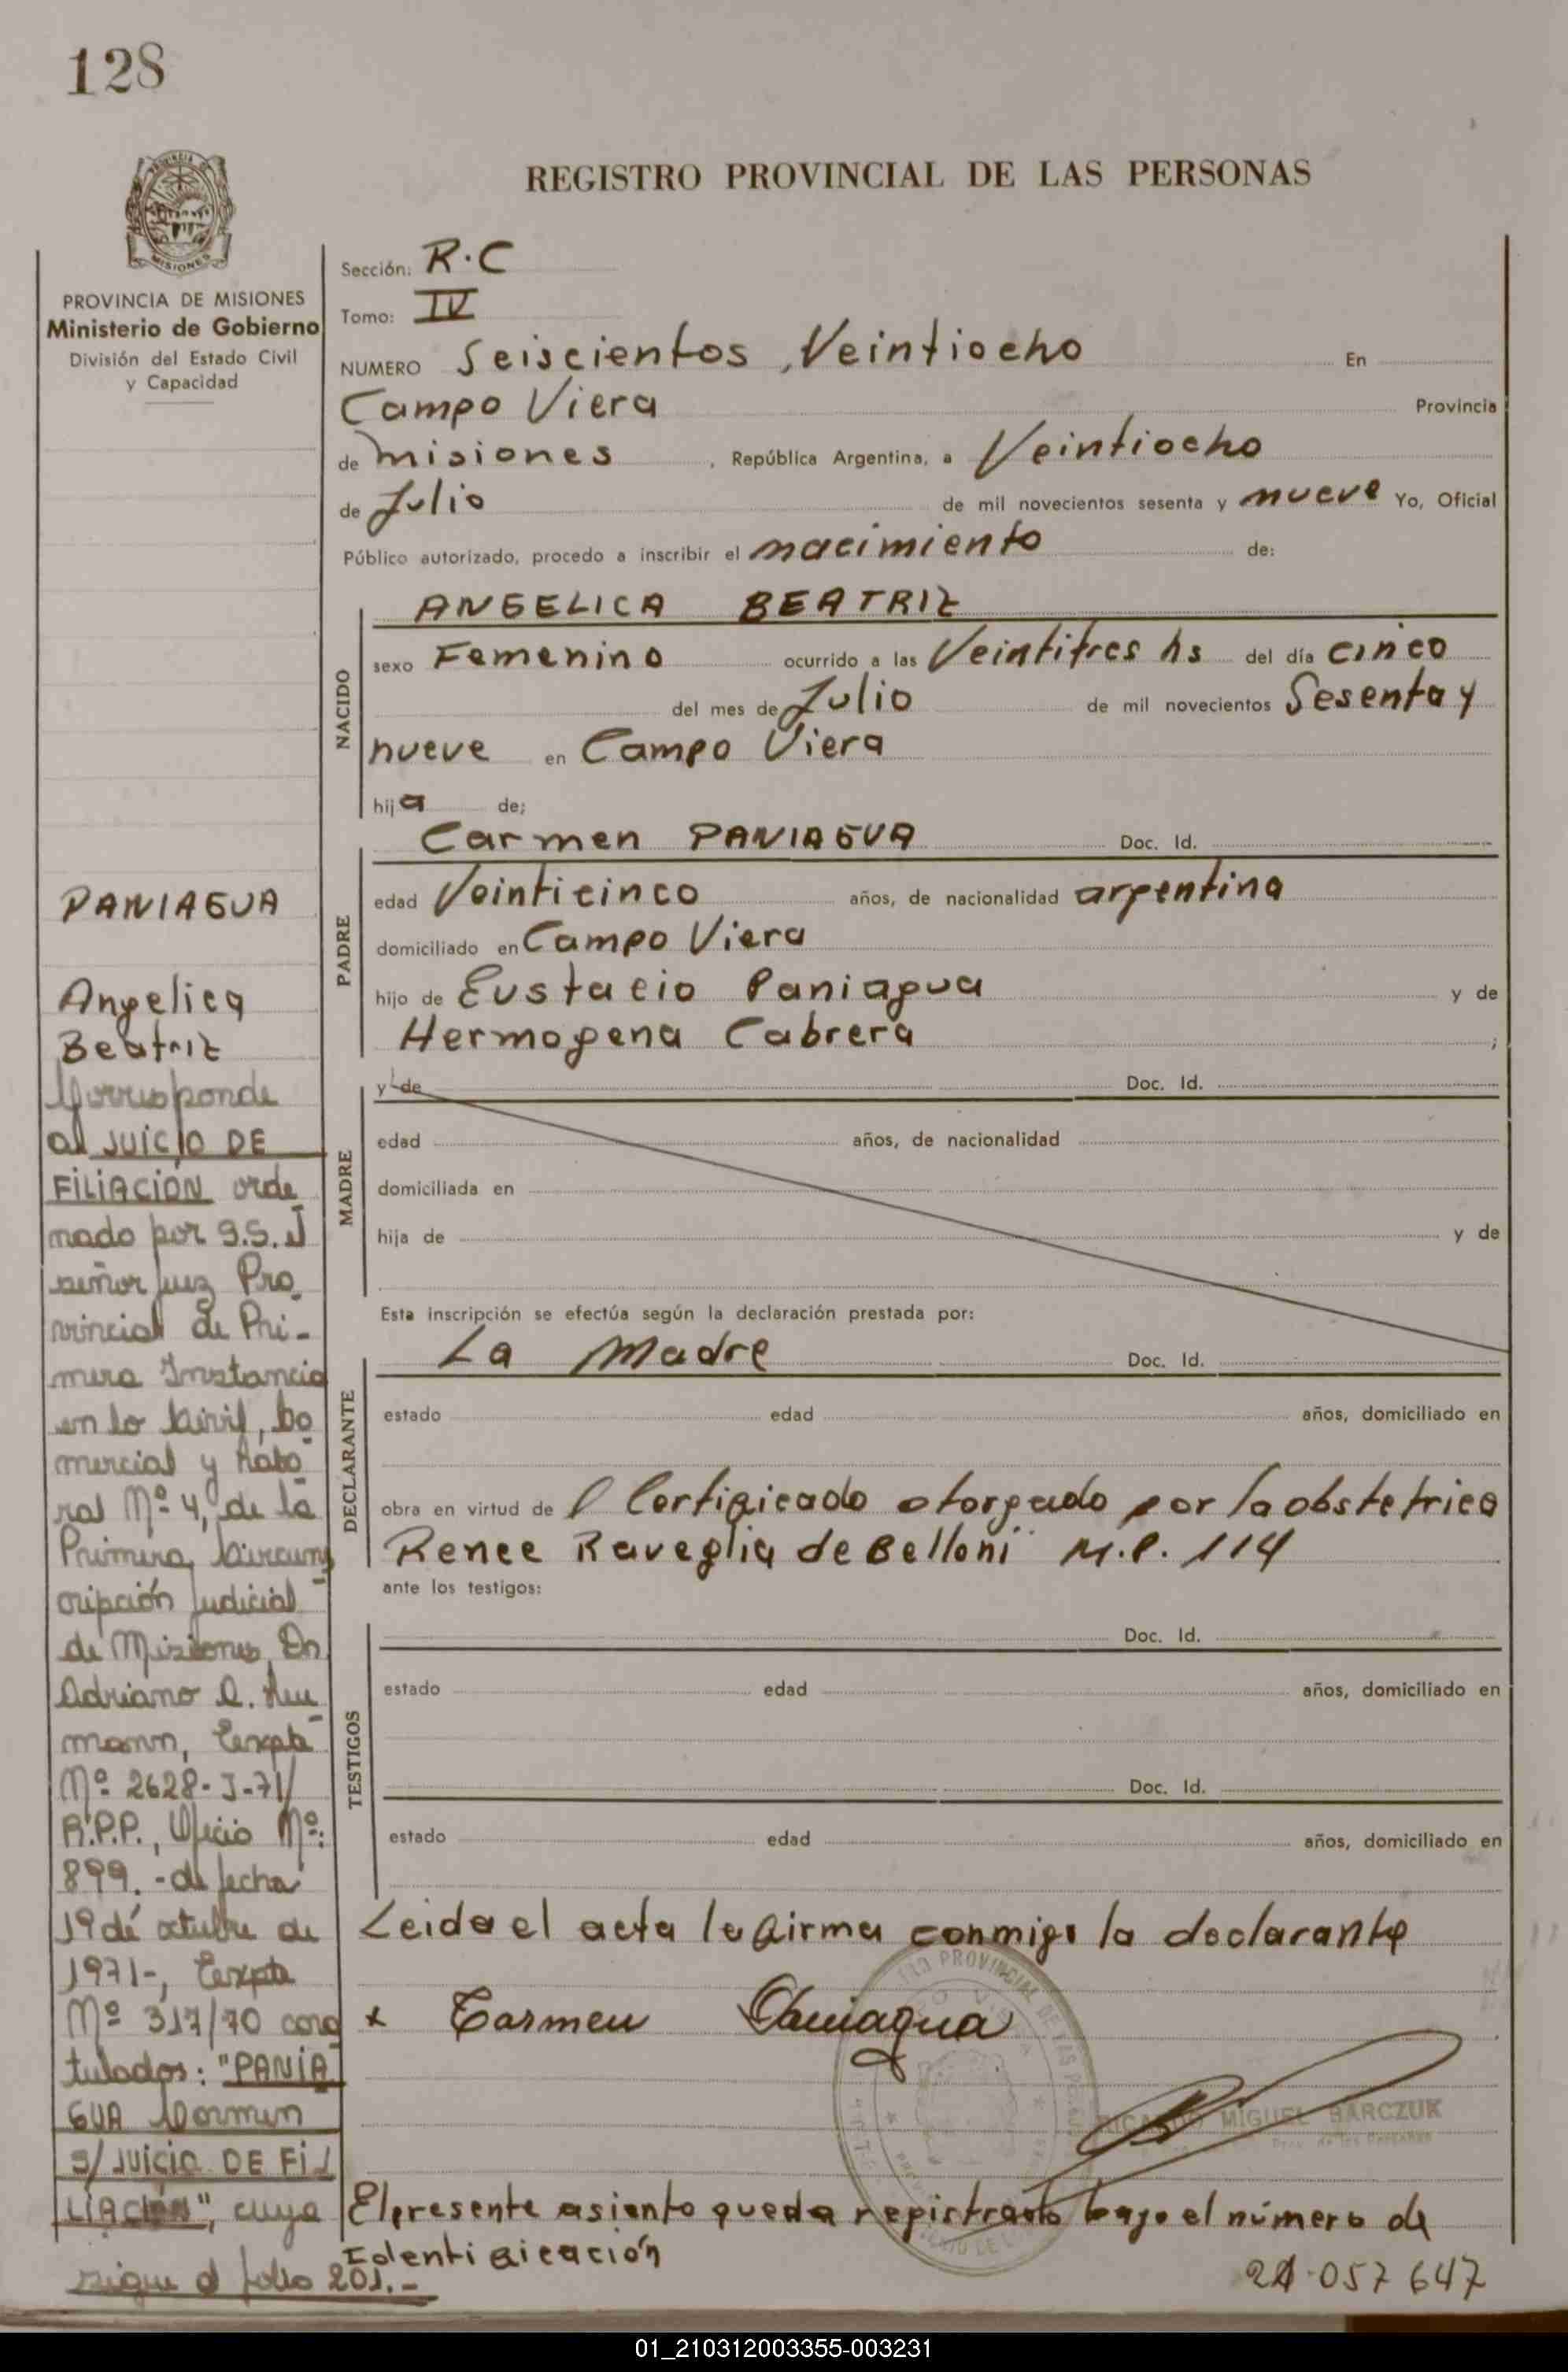 128
REGISTRO PROVINCIAL DE LAS PERSONAS
MISIONES
PROVINCIA DE MISIONES
Ministerio de Gobierno
División del Estado Civil
y Capacidad
Sección: R.C
Tomo: IV
NUMERO Seiscientos, Veintiocho En
Campo Viera Provincia
de misiones, República Argentina, a Veintiocho
de Julio de mil novecientos sesenta y nueve Yo, Oficial
Público autorizado, procedo a inscribir el nacimiento de:
NACIDO
ANGELICA BEATRIZ
sexo Femenino ocurrido a las Veintitres hs del día cinco
del mes de Julio de mil novecientos Sesenta y
nueve en Campo Viera
hija de;
PADRE
Carmen PANIAGUA Doc. Id.
edad Veinticinco años, de nacionalidad argentina
domiciliado en Campo Viera
hijo de Eustacio Paniagua y de
Hermogena Cabrera ;
MADRE
y de Doc. Id.
edad años, de nacionalidad
domiciliada en
hija de y de
Esta inscripción se efectúa según la declaración prestada por:
DECLARANTE
La Madre Doc. Id.
estado edad años, domiciliado en
obra en virtud de l Certificado otorgado por la obstetrica
Renee Raveglia de Belloni M.P. 114
ante los testigos:
TESTIGOS
Doc. Id.
estado edad años, domiciliado en
Doc. Id.
estado edad años, domiciliado en
Leida el acta la firma conmigo la declarante
x Carmen Paniagua
RICARDO MIGUEL BARCZUK
El presente asiento queda registrado bajo el número de
Identificación
21.057647
PANIAGUA
Angelica
Beatriz
Corresponde
al JUICIO DE
FILIACION orde
nado por S.S. el
señor Juez Pro_
vincial de Pri-
mera Instancia
en lo Civil, Co_
mercial y Labo_
ral Nº 4, de la
Primera Circuns_
cripción Judicial
de Misiones, Dn
Adriano A.
mann, Expte
Nº 2628-J-71/
R.P.P., Oficio Nº:
899.- de fecha
19 de octubre de
1971-, Expte
Nº 317/70 cara
tulados: "PANIA
GUA Carmen
S/ JUICIO DE FI_
LIACION", cuya
sigue al folio 201.-
01_210312003355-003231